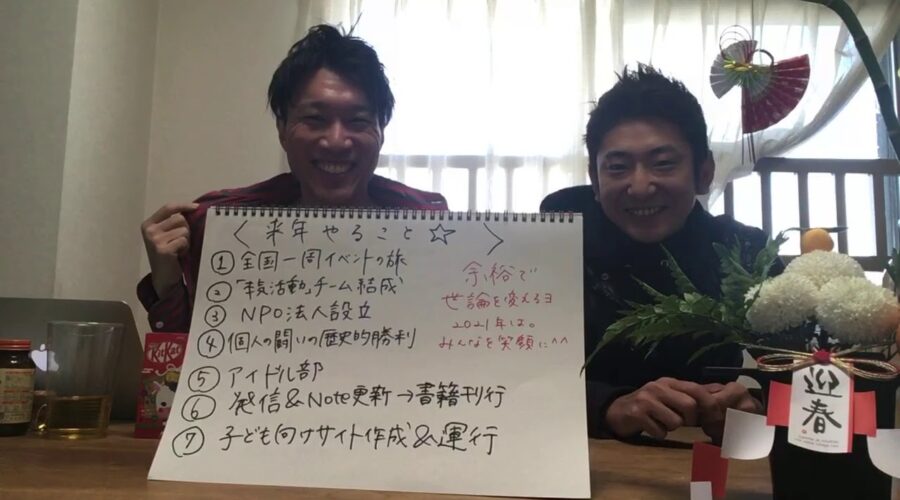 〈来年やること☆〉
①全国一周イベントの旅
②「積活動」チーム結成
③NPO法人設立
④個人の闘いの歴史的勝利
⑤アイドル部
⑥発信&Note更新→書籍刊行
⑦子ども向けサイト作成&運行
余裕で
世論を変えるヨ
2021年は。
みんなを笑顔に^^
KitKat
迎春